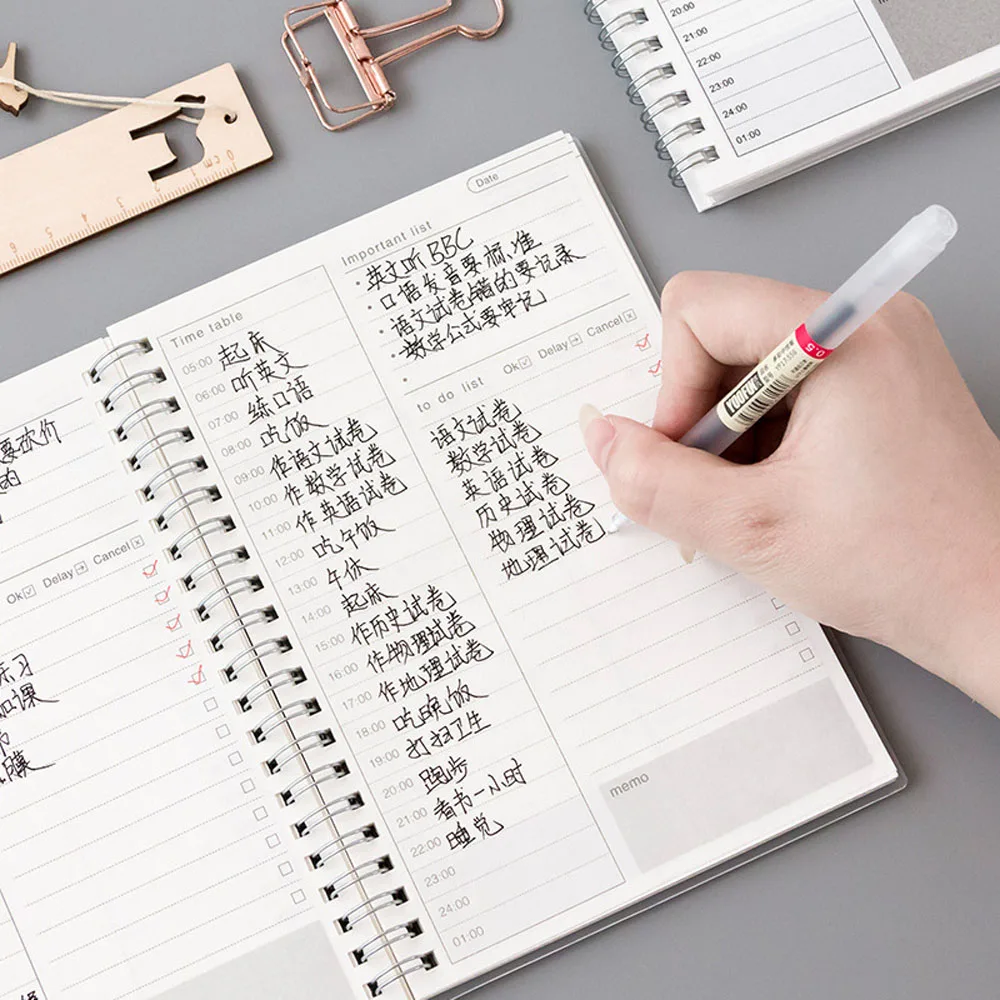 20:00
21:00
22:00
23:00
24:00
01:00
0cm 1 2 3 4 5 6
要砍价
的
Ok Delay Cancel
习
课
膜
Time table
05:00 起床
06:00 听英文
07:00 练口语
08:00 吃饭
09:00 作语文试卷
10:00 作数学试卷
11:00 作英语试卷
12:00 吃午饭
13:00 午休
14:00 起床
15:00 作历史试卷
16:00 作物理试卷
17:00 作地理试卷
18:00 吃晚饭
19:00 打扫卫生
20:00 跑步
21:00 看书一小时
22:00 睡觉
23:00
24:00
01:00
Date
Important list
·英文听BBC
·口语发音要标准
·语文试卷错的要记录
·数学公式要牢记
to do list Ok Delay Cancel
语文试卷
数学试卷
英语试卷
历史试卷
物理试卷
地理试卷
memo
0.5